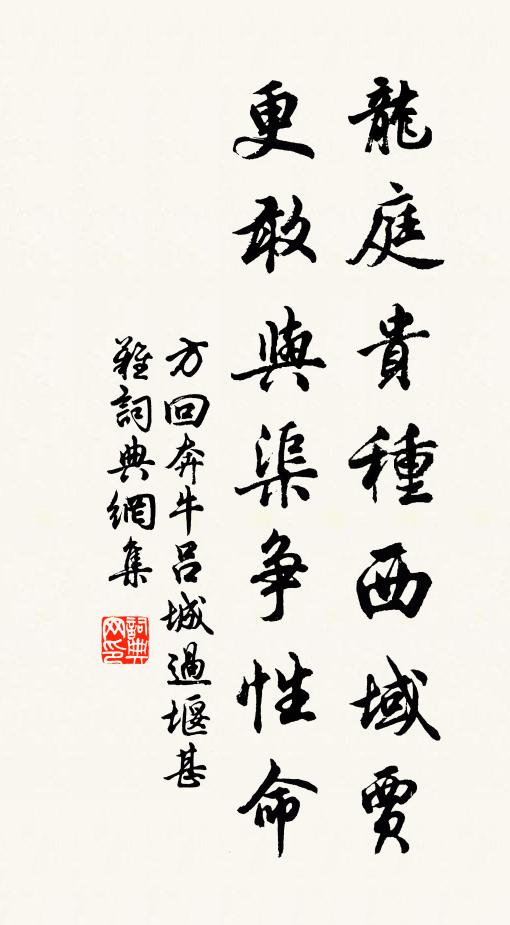 龍庭貴種西域賈
更敢與渠爭性命
方回奔牛呂城過堰甚
難詞典網集
詞典網印